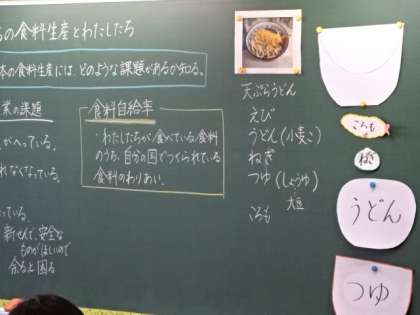 の食料生産とわたしたち
本の食料生産には、どのような課題があるか知る。
業の課題
がへっている。
れなくなっている。
っている。
新せんで、安全な
ものがほしいので
余ると困る
食料自給率
・わたしたちが食べている食料
のうち、自分の国でつくられている
食料のわりあい。
天ぷらうどん
えび
うどん(小麦こ)
ねぎ
つゆ(しょうゆ)
大豆
ころも
ころも
ねぎ
うどん
つゆ